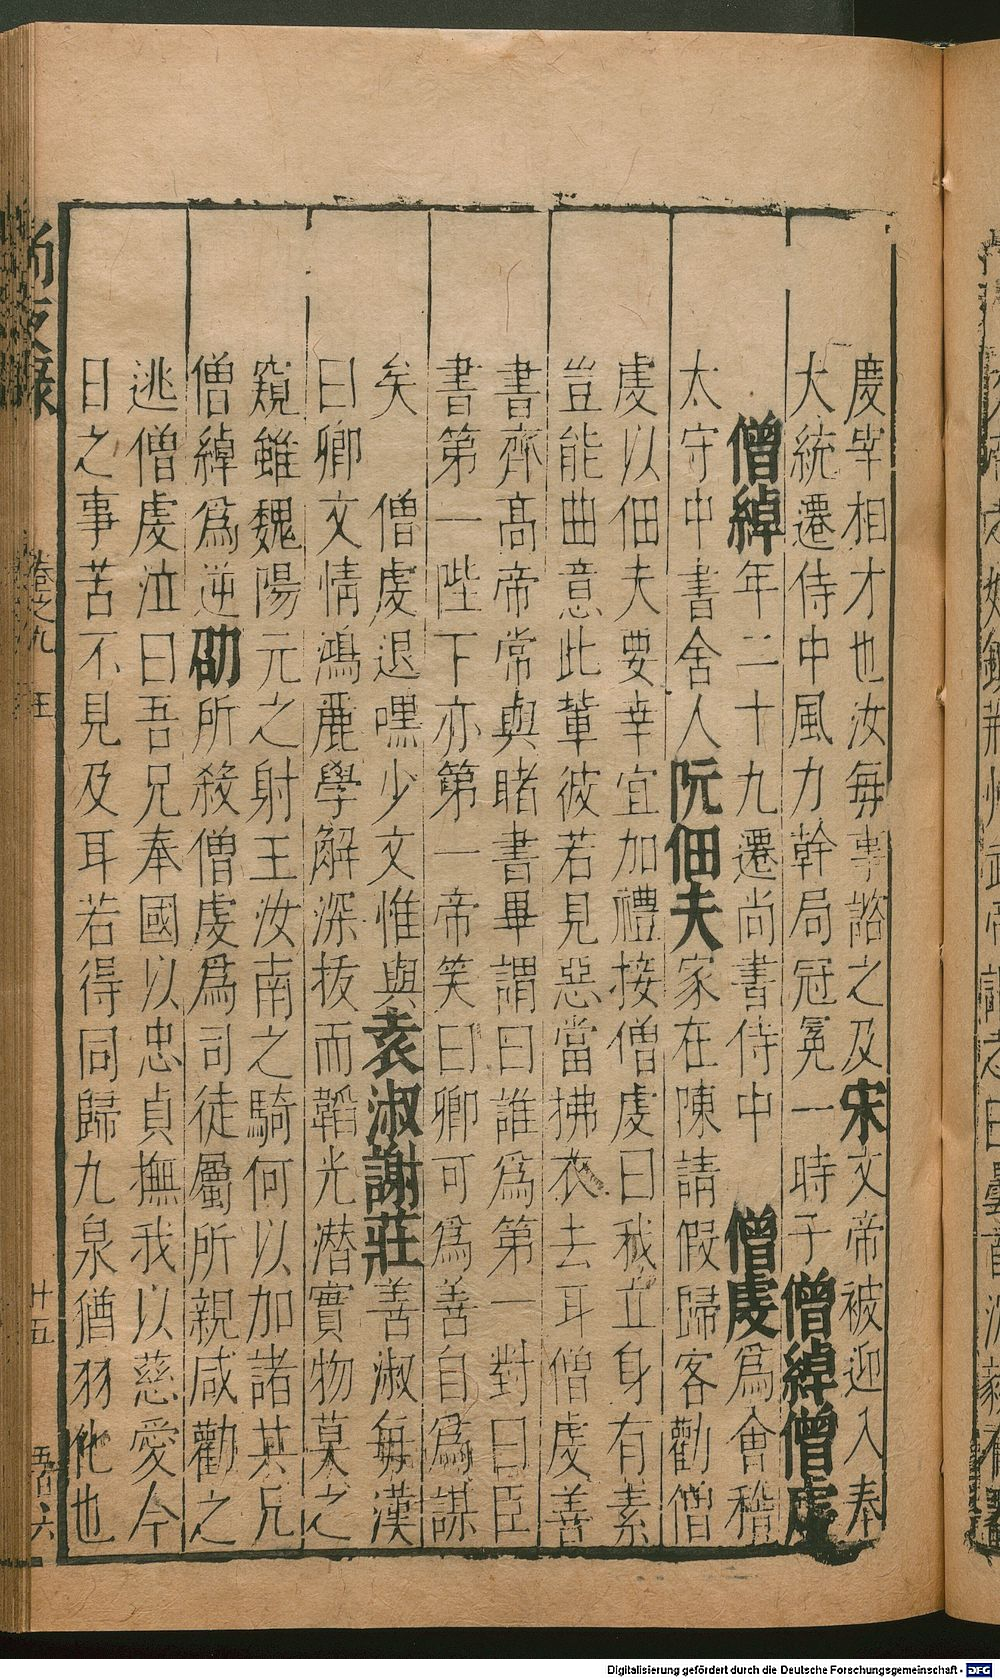 慶宰相才也汝每事諮之及宋文帝被迎入奉
大統遷侍中風力幹局冠冕一時子僧綽僧虔
僧綽年二十九遷尚書侍中 僧虔爲會稽
太守中書舍人阮佃夫家在陳請假歸客勸僧
虔以佃夫要幸宜加禮接僧虔曰我立身有素
豈能曲意此輩彼若見惡當拂衣去耳僧虔善
書齊高帝常與賭書畢謂曰誰爲第一對曰臣
書第一陛下亦第一帝笑曰卿可爲善自爲謀
矣 僧虔退嘿少文惟與袁淑謝莊善淑每漢
曰卿文情鴻麗學解深拔而韜光潛實物莫之
窺雖魏陽元之射王汝南之騎何以加諸其兄
僧綽爲逆劭所殺僧虔爲司徒屬所親咸勸之
逃僧虔泣曰吾兄奉國以忠貞撫我以慈愛今
日之事苦不見及耳若得同歸九泉猶羽化也
尚友錄 卷之九 王 廿五
Digitalisierung gefördert durch die Deutsche Forschungsgemeinschaft - DFG